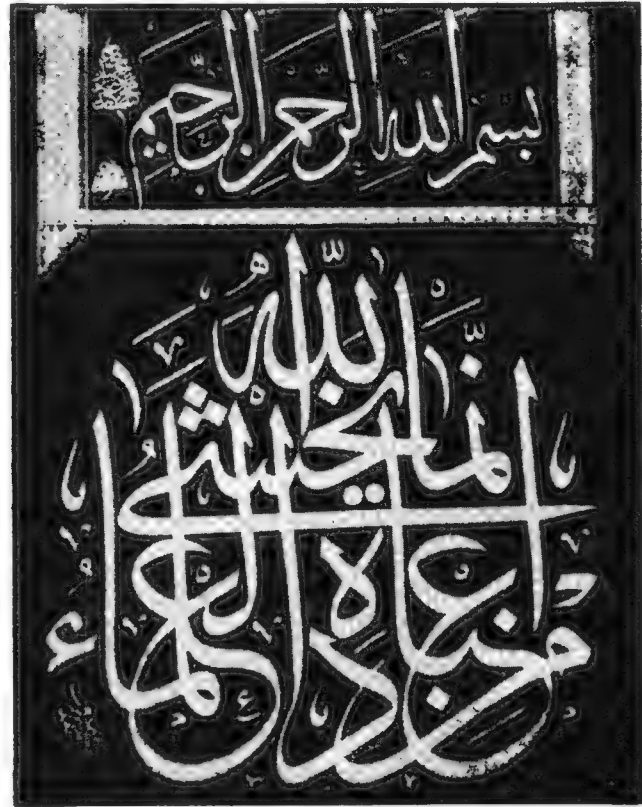 بسم الله الرحمن الرحيم
إنما يخشى الله
من عباده العلماء